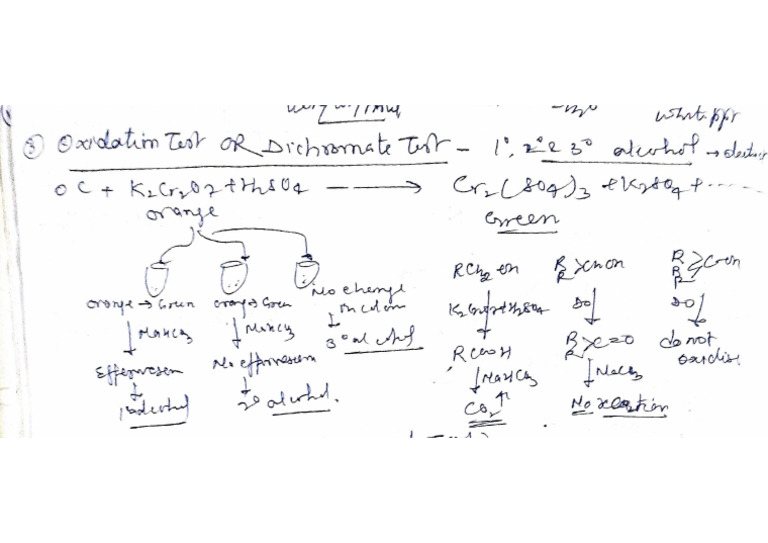 ③ Oxidation Test OR Dichromate Test - 1°, 2° & 3° alcohol →
OC + K2Cr2O7 + H2SO4 → Cr2(SO4)3 + K2SO4 + ......
orange Green
orange → Green
NaHCO3
Effervescen
1° alcohol
orange → Green
NaHCO3
No effervescen
2° alcohol.
No change
in colour
3° alcohol
RCH2OH
K2Cr2O7 + H2SO4
RCOOH
NaHCO3
CO2 ↑
R
R >CHOH
DO
R
R >C=O
No reaction
R
R
R >C-OH
DO
do not
oxidise.